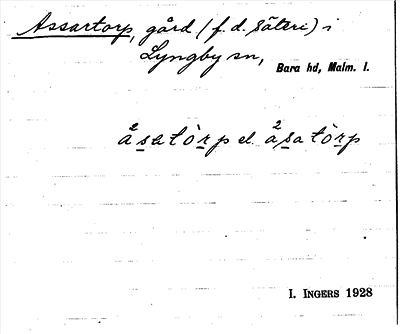 Assartorp, gård (f. d. Säteri) i
Lyngby sn, Bara hd, Malm. l.
åsatòrp el. åsatòrp
I. INGERS 1928